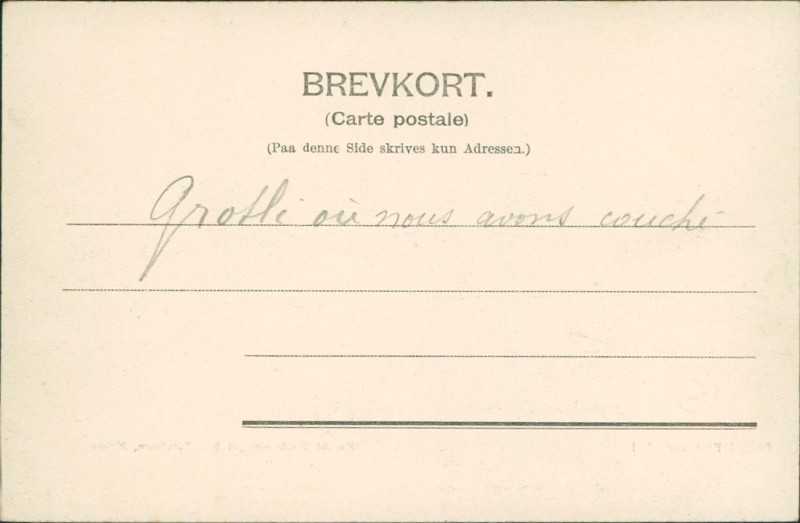 BREVKORT.
(Carte postale)
(Paa denne Side skrives kun Adressen.)
Grotli où nous avons couché